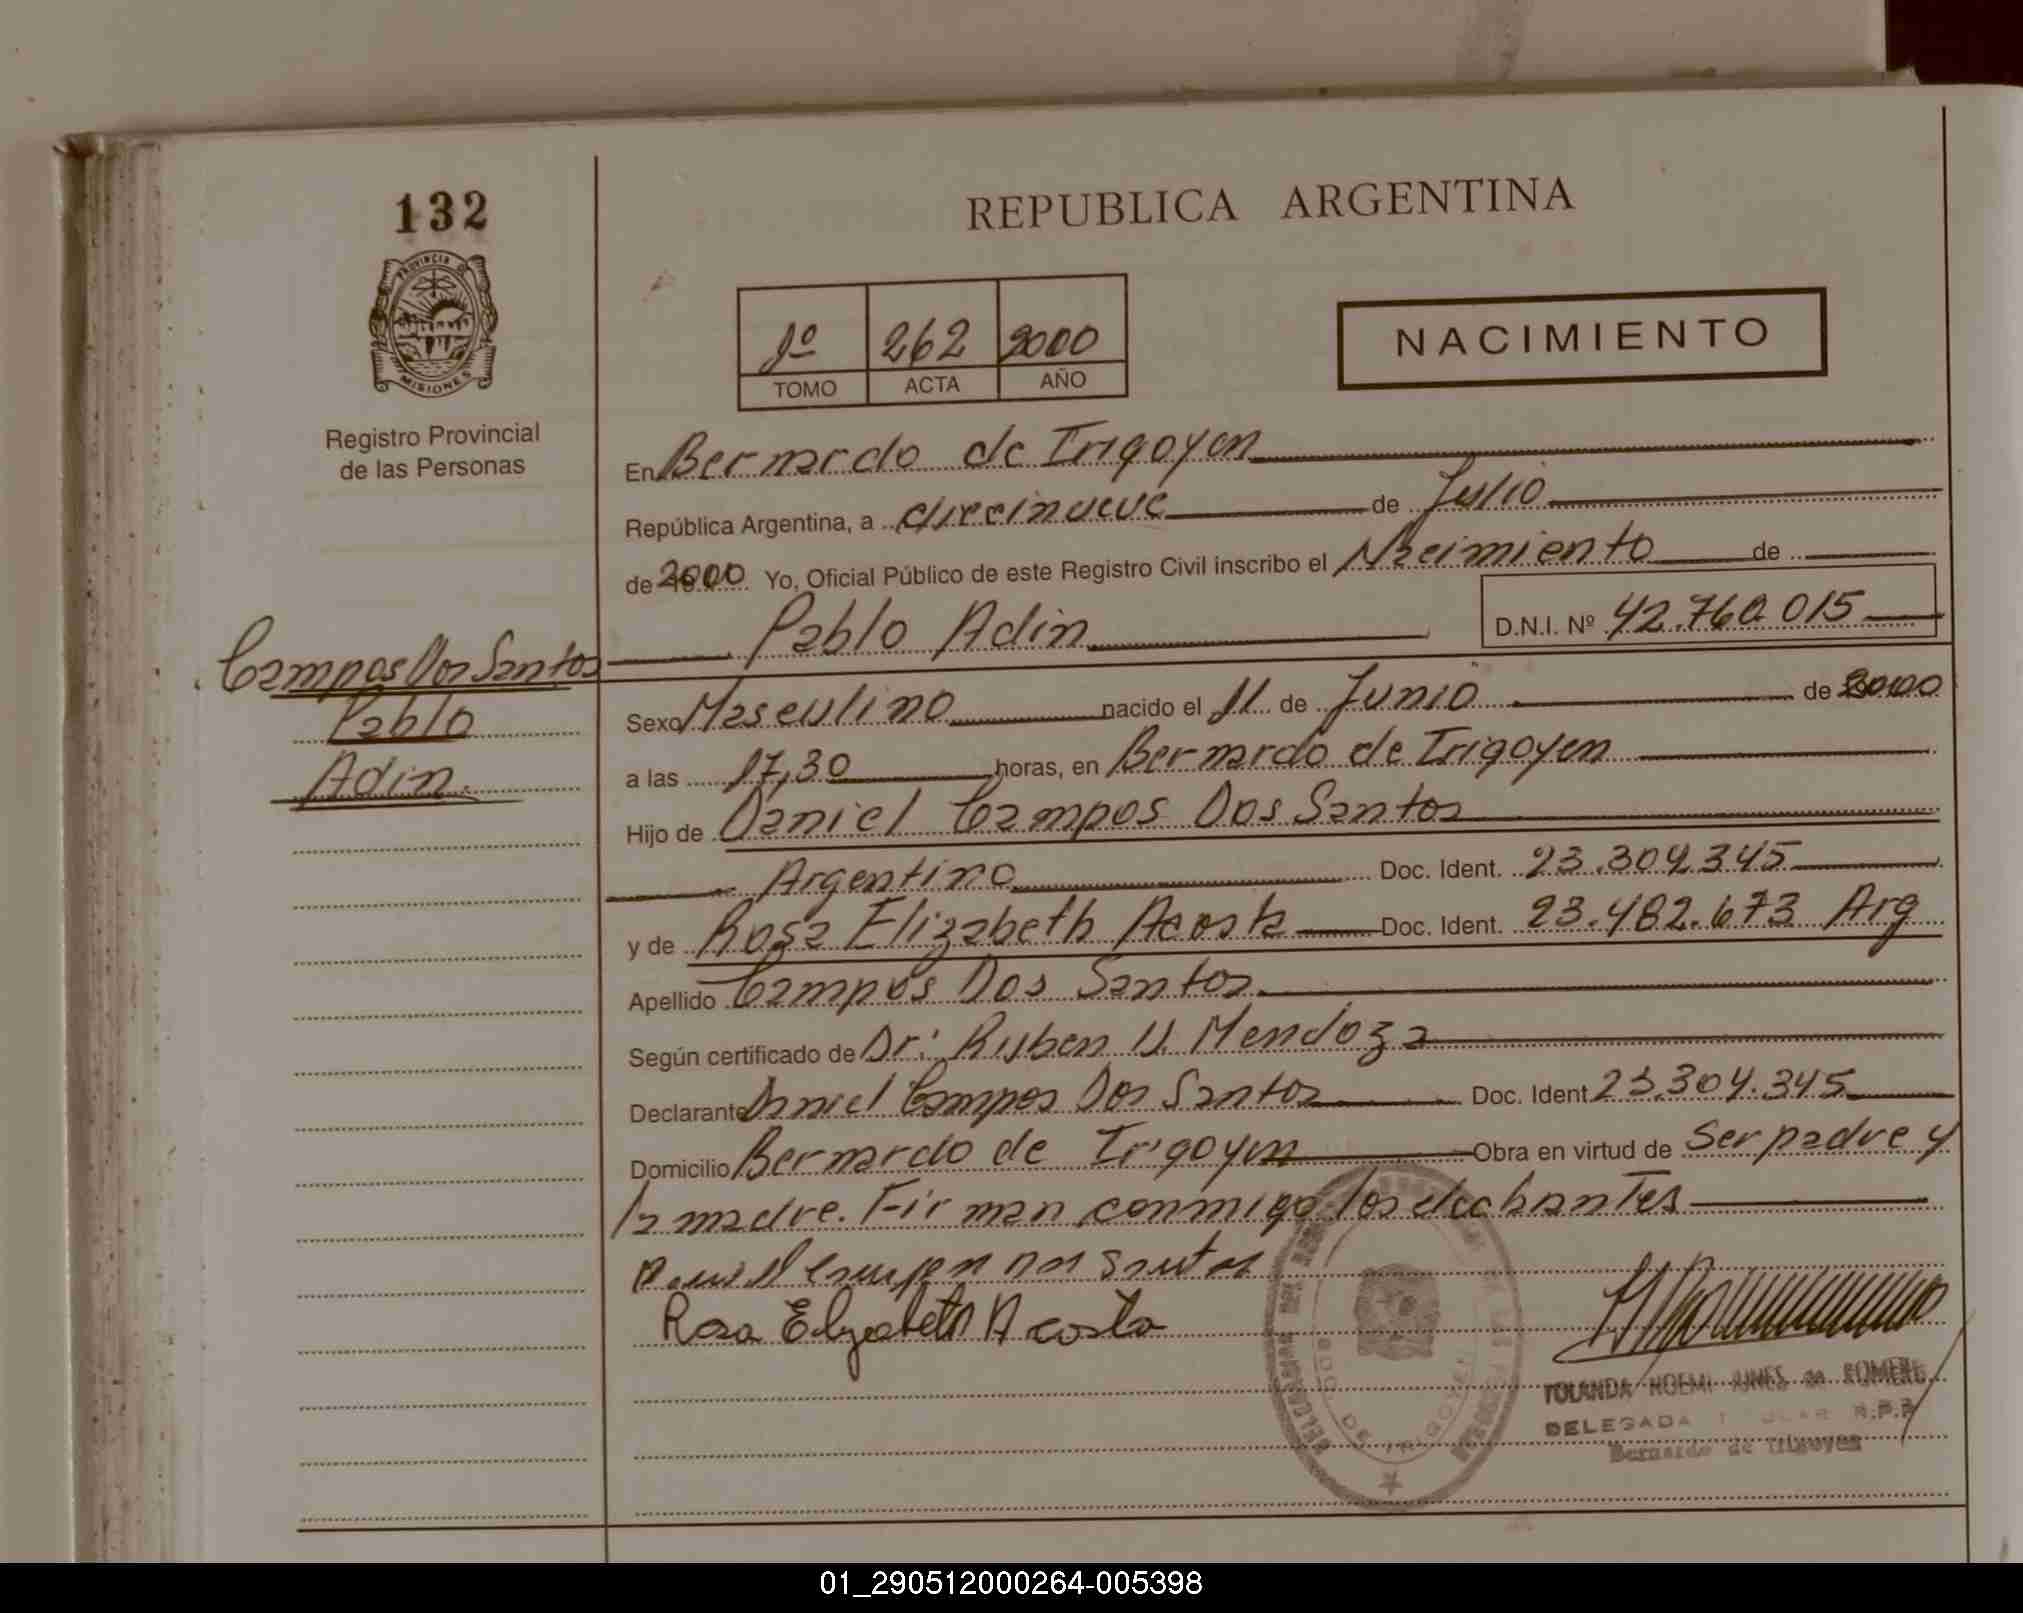 132
PROVINCIA DE
MISIONES
Registro Provincial
de las Personas
REPUBLICA ARGENTINA
1º 262 2000
TOMO ACTA AÑO
NACIMIENTO
En Bernardo de Irigoyen
República Argentina, a diecinueve de Julio
de 2000 Yo, Oficial Público de este Registro Civil inscribo el Nacimiento de
Pablo Adin D.N.I. Nº 42.760.015
Campos Dos Santos
Pablo
Adin
Sexo Masculino nacido el 11 de Junio de 2000
a las 17,30 horas, en Bernardo de Irigoyen
Hijo de Daniel Campos Dos Santos
Argentino Doc. Ident. 23.304.345
y de Rosa Elizabeth Acosta Doc. Ident. 23.482.673 Arg
Apellido Campos Dos Santos
Según certificado de Dr: Ruben U. Mendoza
Declarante Daniel Campos Dos Santos Doc. Ident 23.304.345
Domicilio Bernardo de Irigoyen Obra en virtud de Ser padre y
la madre. Firman conmigo los declarantes
Daniel campos Dos Santos
Rosa Elizabeth Acosta
YOLANDA NOEMI de ROMERO
DELEGADA TITULAR R.P.P
Bernardo de Irigoyen
BDO. DE IRIGOYEN
01_290512000264-005398